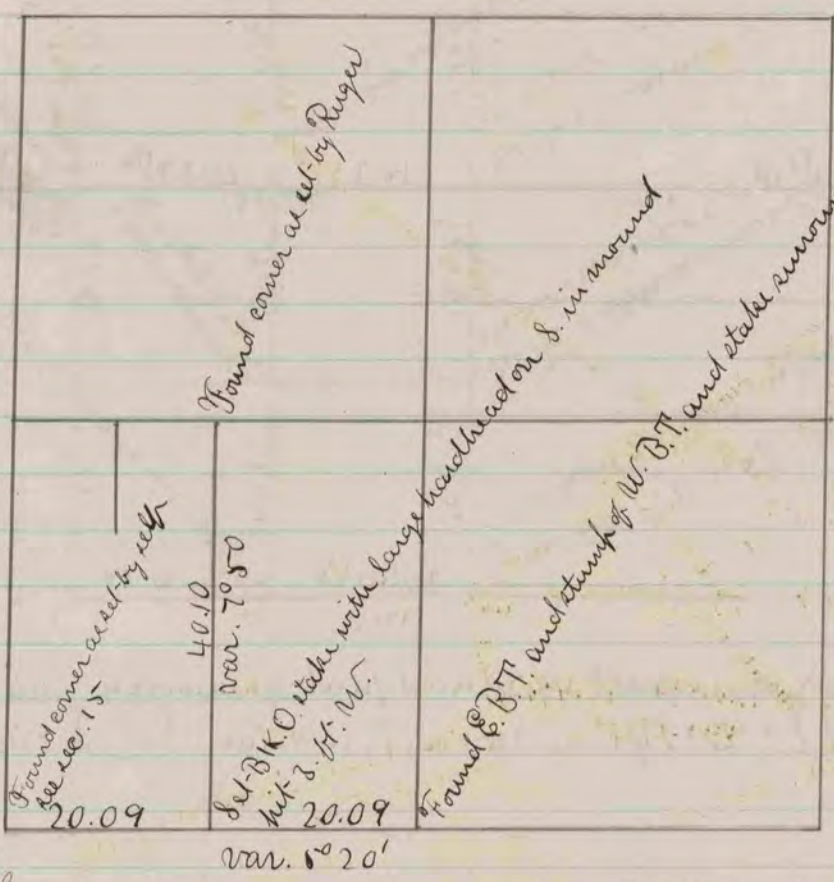 Found corner as set by Ruger
Found corner as set by self
see sec. 15
40.10
var. 7° 50
Set Blk O. stake with large hardhead on S. in mound
hit 3. ft. W.
Found E.B.T. and stump of W.B.T. and stake
20.09
20.09
var. 20'